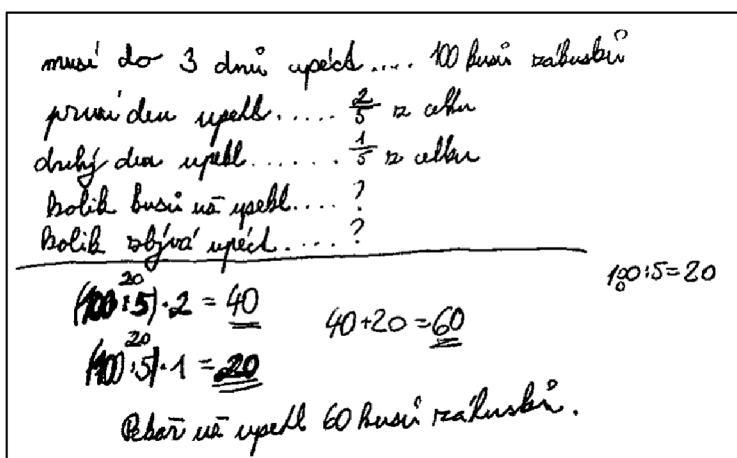 musí do 3 dnů upéct .... 100 kusů zákusků
první den upekl ..... 2/5 z celku
druhý den upekl ...... 1/5 z celku
Kolik kusů už upekl .... ?
Kolik zbývá upéct .... ?
100:5=20
20
(100:5)·2 = 40
40+20=60
20
(100:5)·1 = 20
Pekař už upekl 60 kusů zákusků.